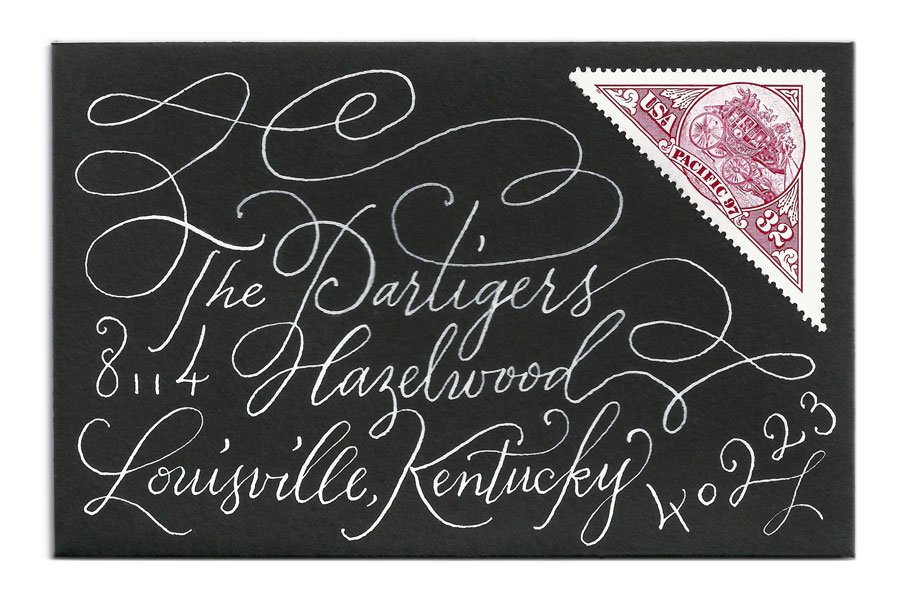 The Partigers
8114 Hazelwood
Louisville, Kentucky 40223
USA
PACIFIC 97
32